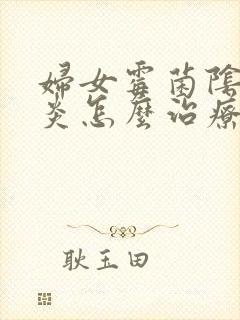 婦女霉菌陰
炎怎麼治療
耿玉田